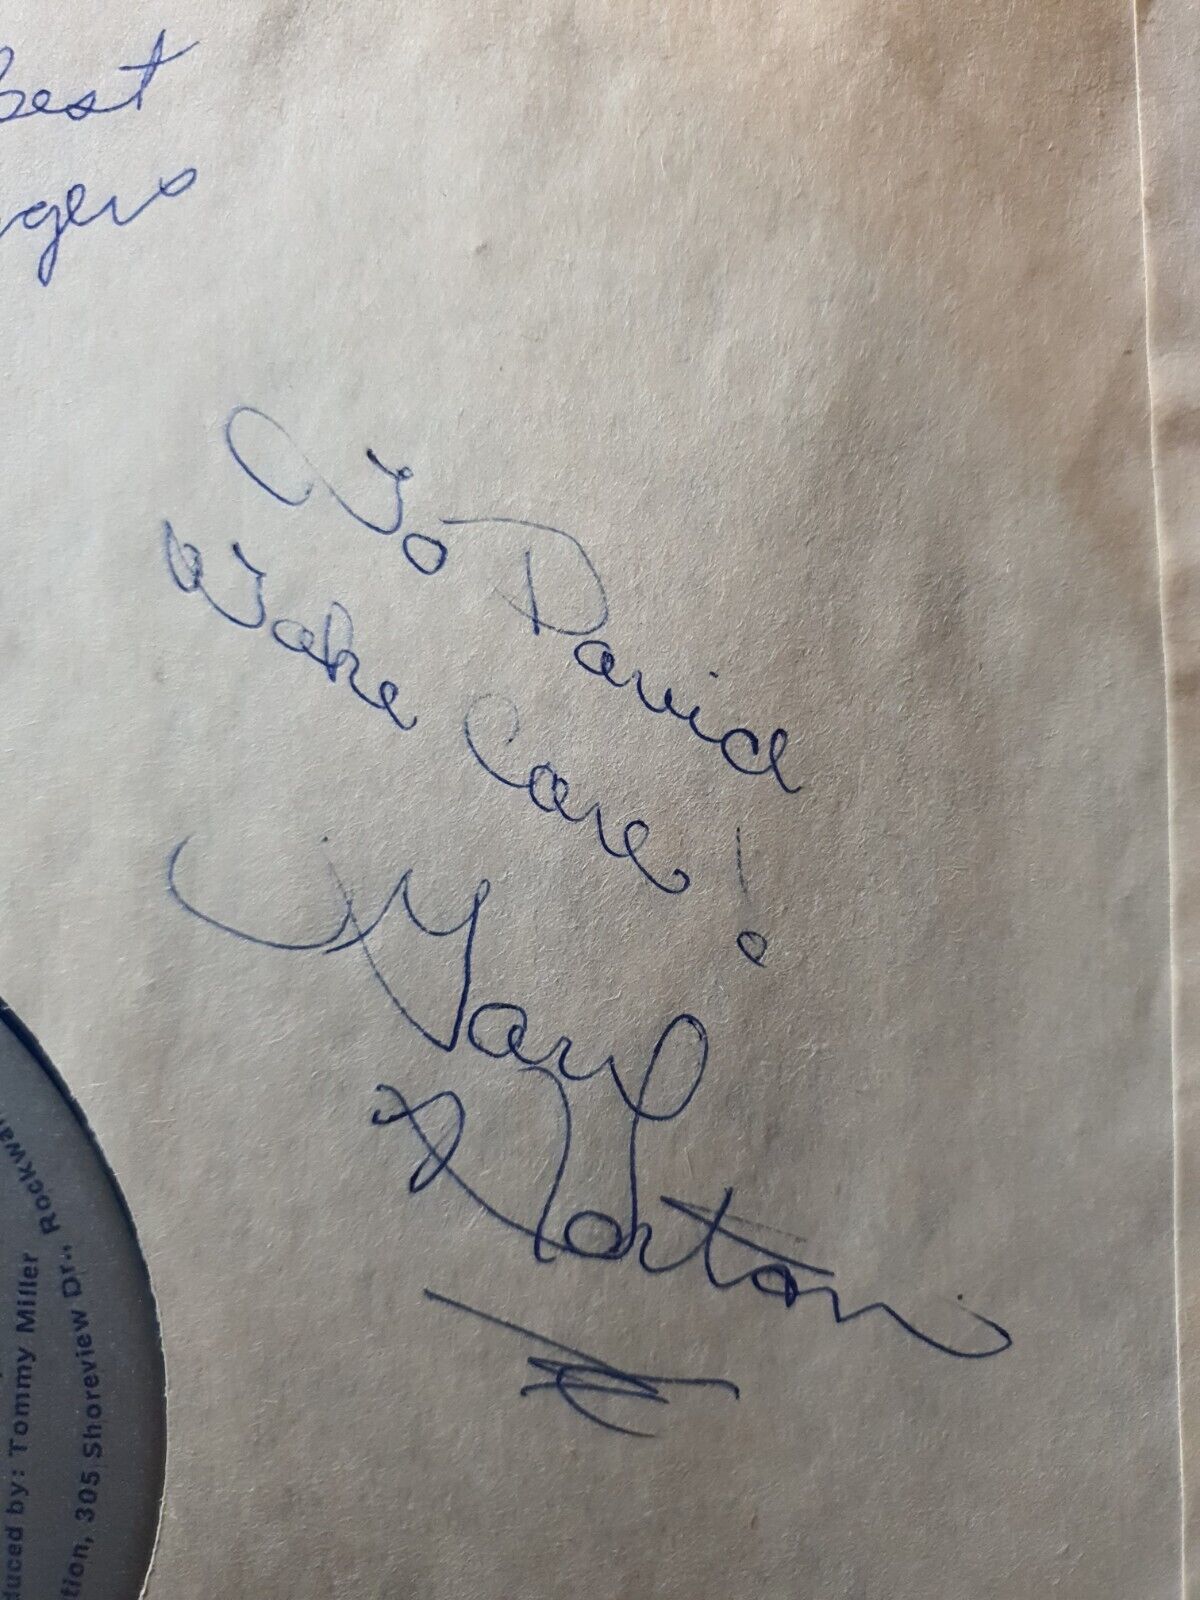 best
gers
To David
Take Care!
Norton
duced by: Tommy Miller
tion, 305 Shoreview Dr., Rockwa